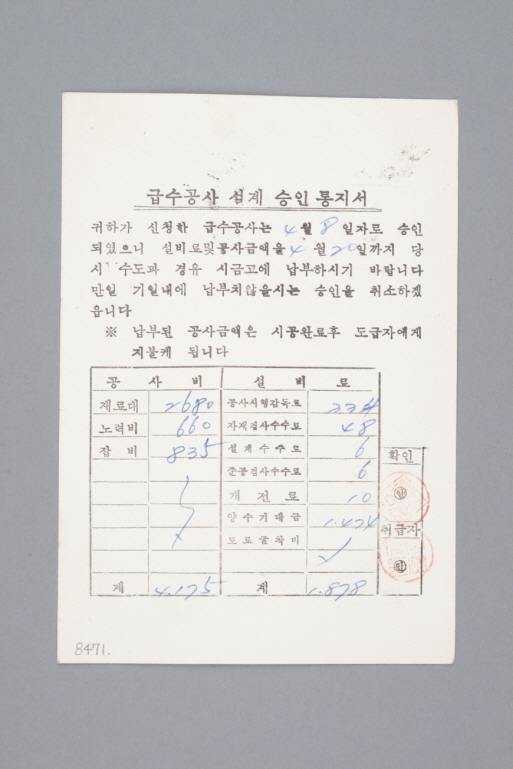 급수공사 설계 승인통지서
귀하가 신청한 급수공사는 4월 8일자로 승인
되었으니 설비료및공사금액을 4월 20일까지 당
시 수도과 경유 시금고에 납부하시기 바랍니다
만일 기일내에 납부치않을시는 승인을 취소하겠
읍니다
※ 납부된 공사금액은 시공완료후 도급자에게
지불케 됩니다
공사비 설비료
재료대 2680 공사시행감독료
노력비 660 자재검사수수료 48
잡비 835 설계수수료 6
확인
준공검사수수료 6
개전료 10
인
양수기대금 1.474
취급자
도로굴착비
인
계 4.175 계 1.878
8471.